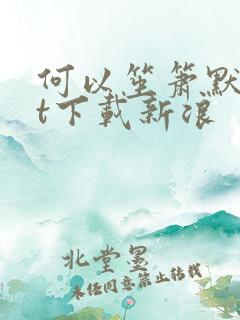 何以笙箫默
t下载新浪
北堂墨
未经同意禁止转载